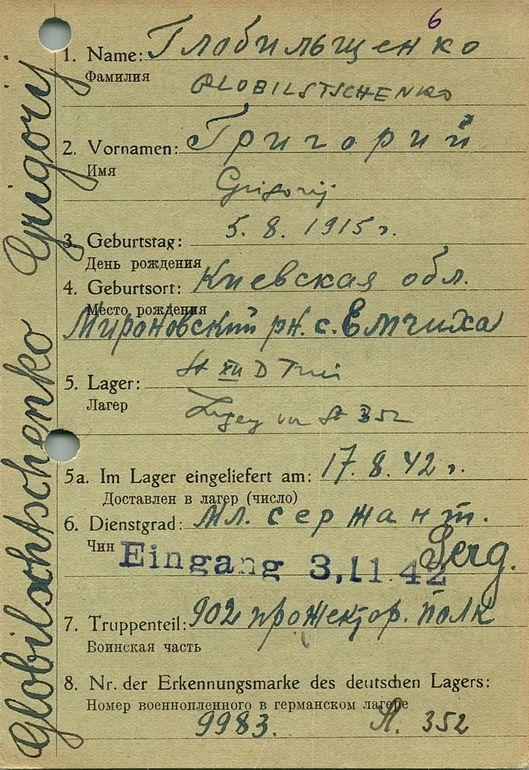 6
1. Name: Глобильщенко
Фамилия
GLOBILSTSCHENKO
2. Vornamen: Григорий
Имя
Grigorij
3. Geburtstag: 5. 8. 1915 г.
День рождения
4. Geburtsort: Киевская обл.
Место рождения
Мироновский рн. с. Емчиха
5. Lager: St XII D Trier
Лагер
St 352
5a. Im Lager eingeliefert am: 17. 8. 42 г.
Доставлен в лагер (число)
6. Dienstgrad: Мл. сержант.
Чин
Serg.
Eingang 3.11.42
7. Truppenteil: 902 прожектор. Полк
Воинская часть
8. Nr. der Erkennungsmarke des deutschen Lagers:
Номер военнопленного в германском лагере
9983. St. 352
Globilschtschenko Grigorij